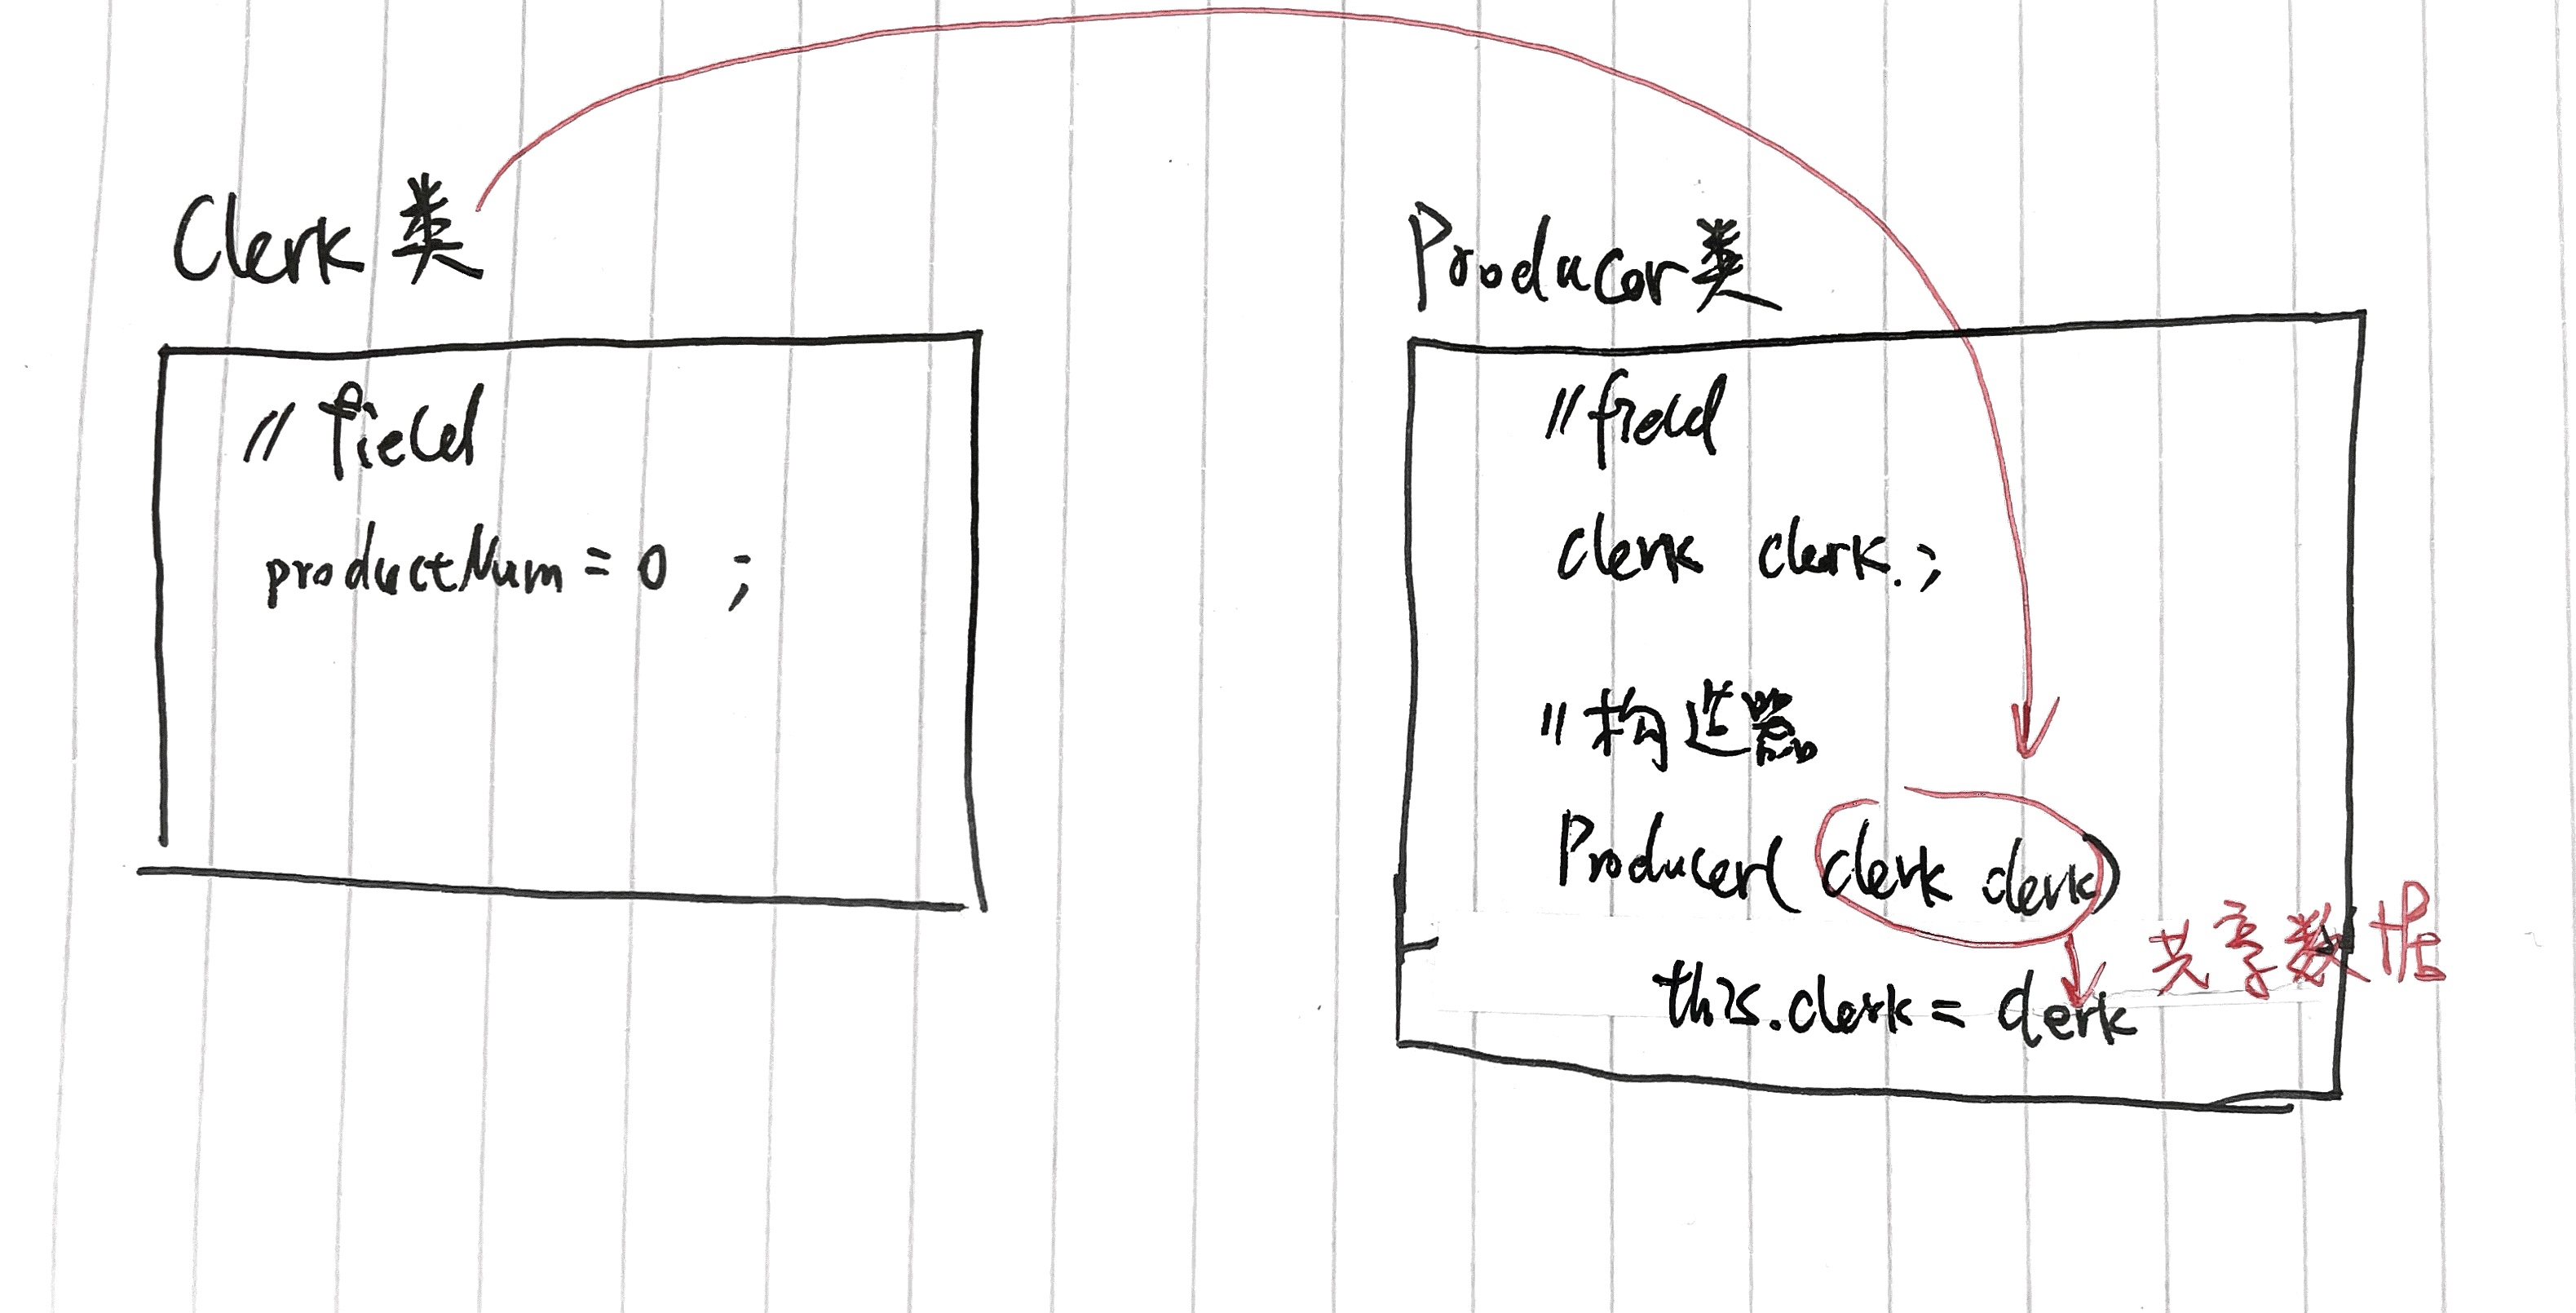 Clerk 类
// field
productNum = 0 ;
Producer类
// field
clerk clerk ;
// 构造器
Producer( clerk clerk)
共享数据
this.clerk = clerk